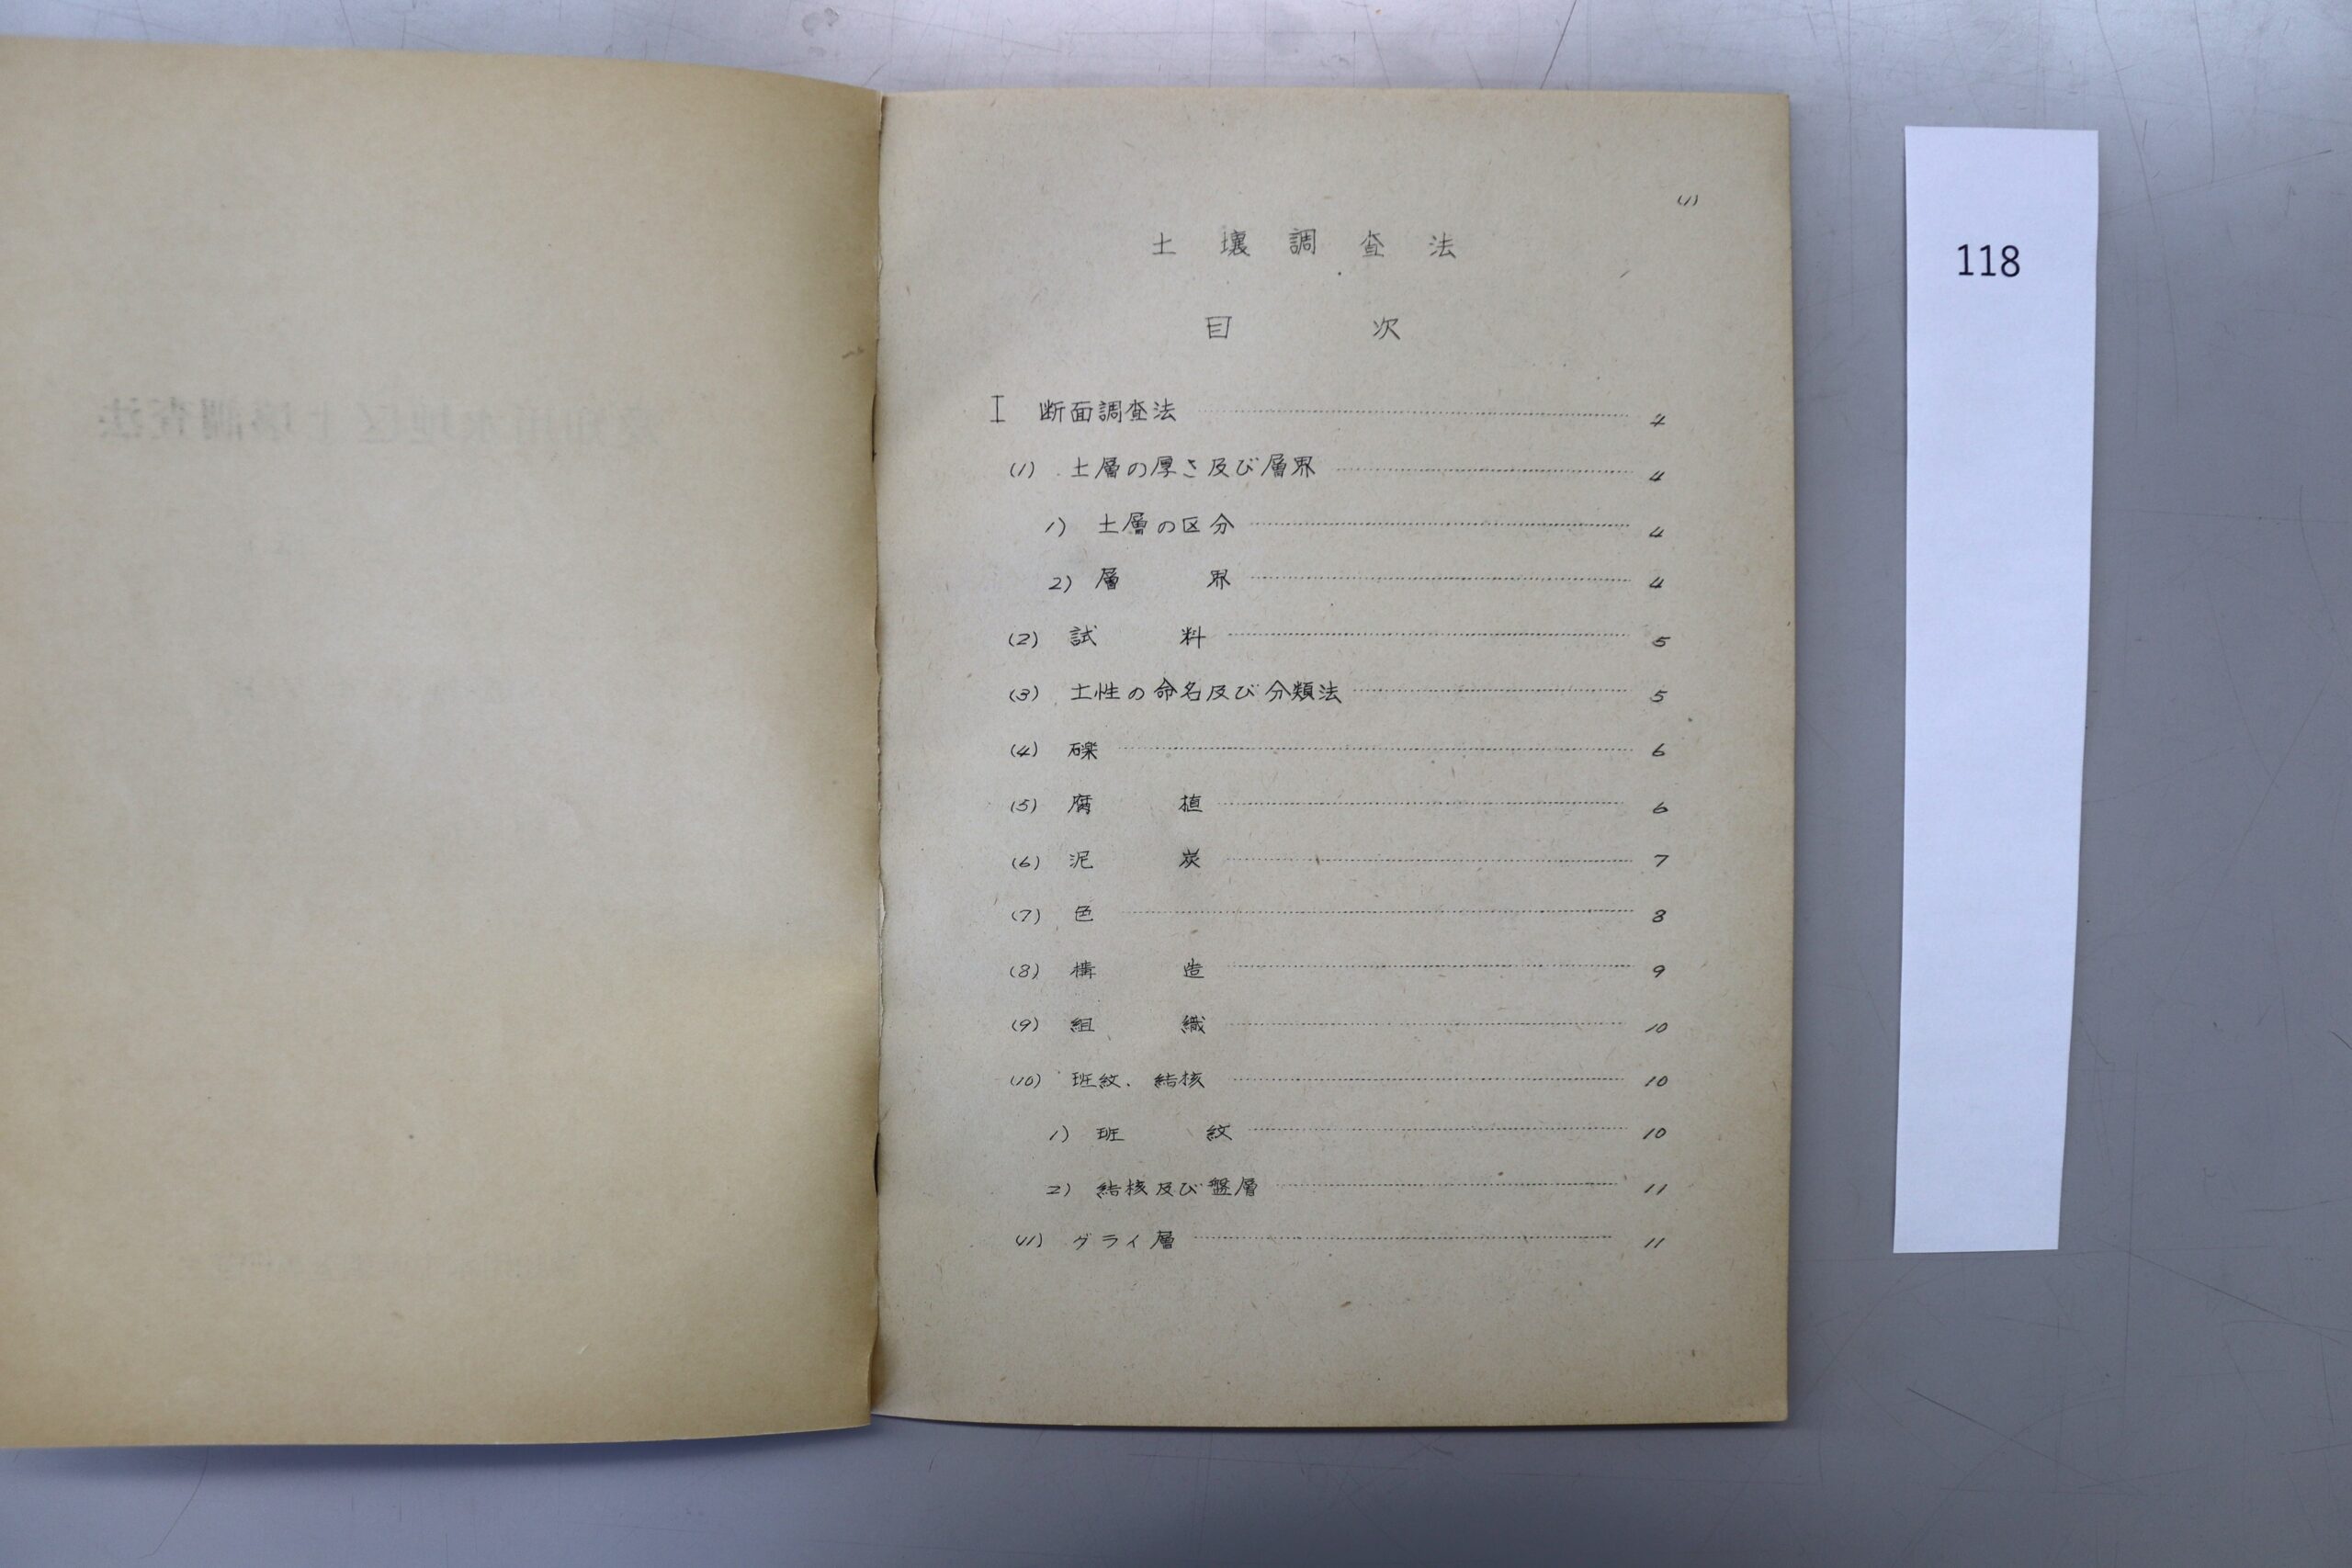 (1)
土壌調査法
目次
I 断面調査法 4
(1) 土層の厚さ及び層界 4
1) 土層の区分 4
2) 層界 4
(2) 試料 5
(3) 土性の命名及び分類法 5
(4) 礫 6
(5) 腐植 6
(6) 泥炭 7
(7) 色 8
(8) 構造 9
(9) 組織 10
(10) 班紋、結核 10
1) 班紋 10
2) 結核及び盤層 11
(11) グライ層 11
118